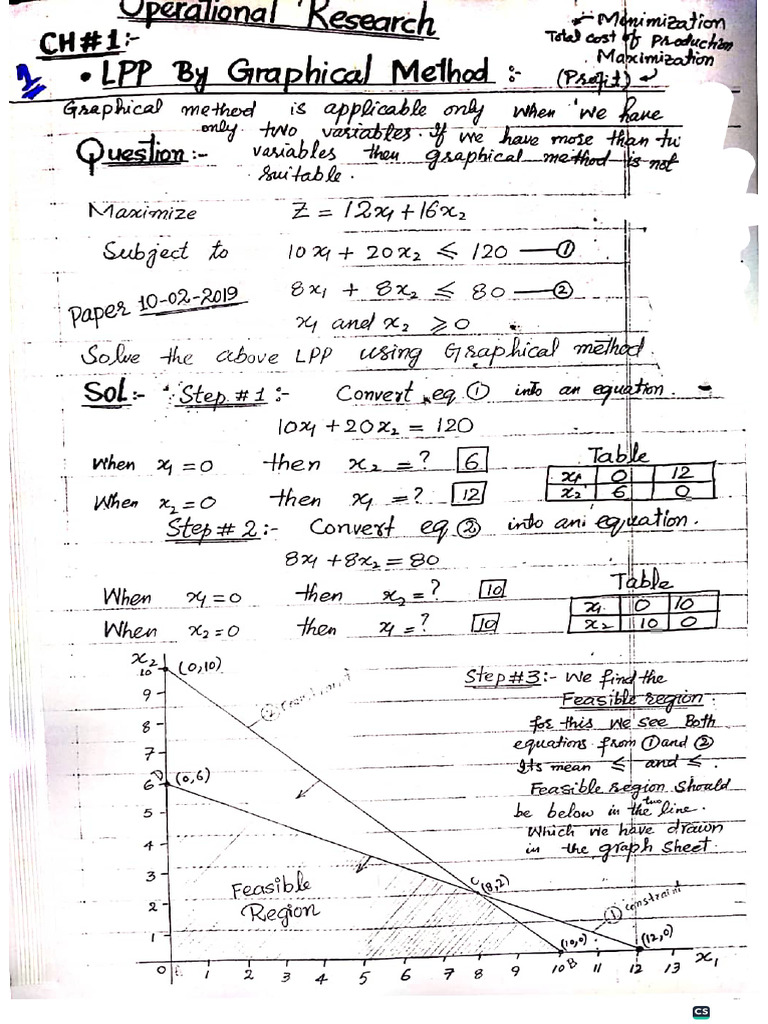 Operational Research
CH#1:-
Minimization
Total cost of Production
Maximization
(Profit)
1
• LPP By Graphical Method :-
Graphical method is applicable only when we have
only two variables. If we have more than tw
Question:- variables then graphical method is not
suitable.
Maximize Z = 12x1 + 16x2
Subject to 10x1 + 20x2 ≤ 120 — ①
Paper 10-02-2019 8x1 + 8x2 ≤ 80 — ②
x1 and x2 ≥ 0
Solve the above LPP using Graphical method.
Sol:- Step #1:- Convert eq ① into an equation.
10x1 + 20x2 = 120
When x1 = 0 then x2 = ? 6
When x2 = 0 then x1 = ? 12
Table
x1 0 12
x2 6 0
Step #2:- Convert eq ② into an equation.
8x1 + 8x2 = 80
When x1 = 0 then x2 = ? 10
When x2 = 0 then x1 = ? 10
Table
x1 0 10
x2 10 0
Step #3:- We find the
Feasible region.
for this we see Both
equations from ① and ②
Its mean ≤ and ≤.
Feasible region should
be below in the two line.
Which we have drawn
in the graph sheet.
x2
10 (0,10)
9
8
7
6 D (0,6)
5
4
3
2
1
② constraint
Feasible
Region
C (8,2)
① constraint
(10,0) B
(12,0)
0 1 2 3 4 5 6 7 8 9 10 11 12 13 x1
CS